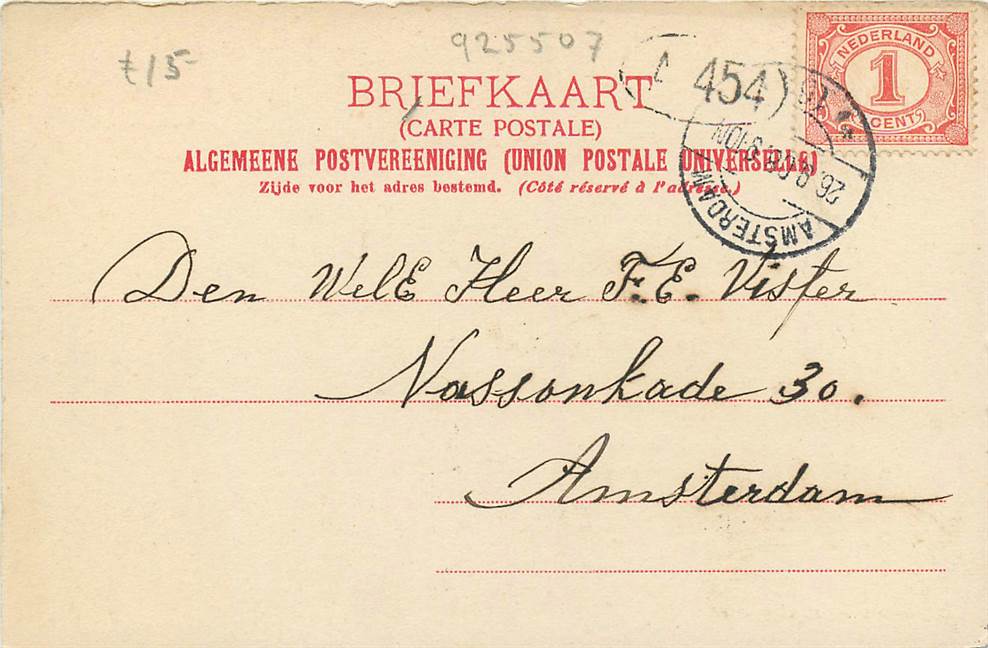 925507
£15-
454
NEDERLAND
1
CENT
BRIEFKAART
(CARTE POSTALE)
ALGEMEENE POSTVEREENIGING (UNION POSTALE UNIVERSELLE)
Zijde voor het adres bestemd. (Côté réservé à l'adresse.)
AMSTERDAM
Den WelE Heer F. E. Visser
Nassoukade 30.
Amsterdam